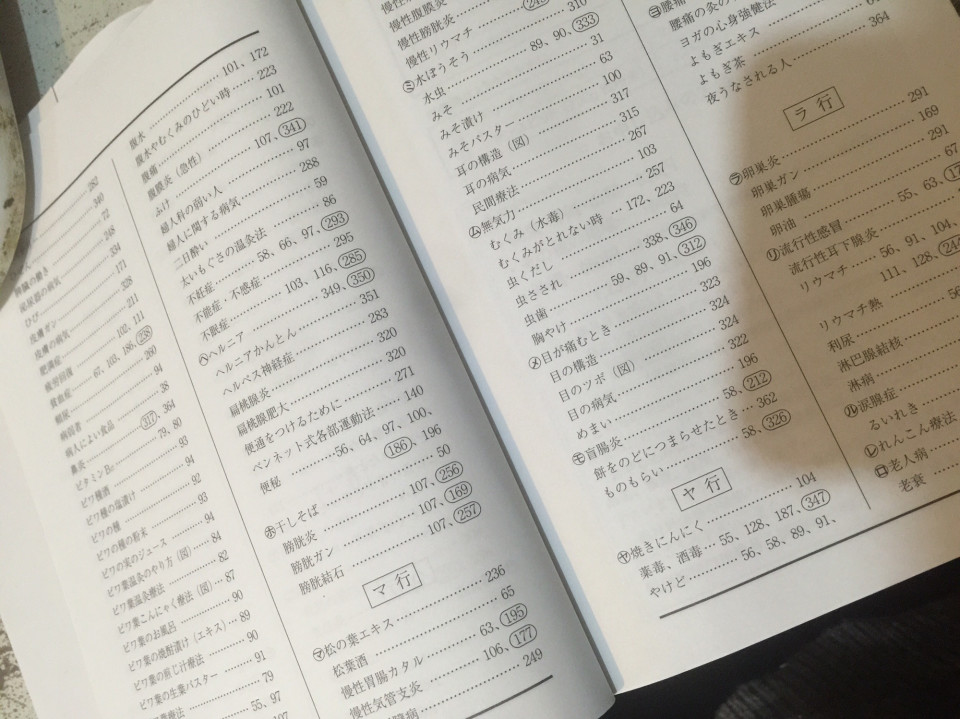 282
340
72
の働き 248
泌尿器の病気 334
ひび 177
皮膚ガン 328
皮膚の病気 211
肥満症 102、111
疲労回復 67、103、186、258
貧血症 260
頻尿 94
病弱者 38
病人によい食品 317、364
鼻炎 79、80
ビタミンB17 93
ビワ種酒 94
ビワ種の塩漬け 92
ビワの種 93
ビワの種の粉末 94
ビワの実のジュース
ビワ葉温灸のやり方（図）…84
ビワ葉温灸療法……82
ビワ葉こんにゃく療法（図）…87
ビワ葉のお風呂……90
ビワ葉の焼酎漬け（エキス）…89
ビワ葉の煎じ汁療法……90
ビワ葉の生葉パスター……91
療法……79
55、97
107
腹水……101、172
腹水やむくみのひどい時……223
腹痛……101
腹膜炎（急性）……222
ふけ……107、341
婦人科の弱い人……97
婦人に関する病気……288
二日酔い……59
太いもぐさの温灸法……86
不妊症……58、66、97、293
不能症・不感症……295
不眠症……103、116、285
ヘ ヘルニア……349、350
ヘルニアかんとん……351
ヘルペス神経症……283
扁桃腺炎……320
扁桃腺肥大……320
便通をつけるために……271
ベンネット式各部運動法……140
便秘……56、64、97、100、
186、196
ホ 干しそば……50
膀胱炎……107、256
膀胱ガン……107、169
膀胱結石……107、257
マ行
マ 松の葉エキス……236
松葉酒……65
慢性胃腸カタル……63、195
慢性気管支炎……106、177
249
慢性腹膜炎
慢性膀胱炎
慢性リウマチ……245
ミ 水ぼうそう……310
水虫……89、90、333
みそ……31
みそ漬け……63
みそパスター……100
耳の構造（図）……317
耳の病気……315
民間療法……267
ム 無気力……103
むくみ（水毒）……257
むくみがとれない時……172、223
虫くだし……64
虫さされ……338、346
虫歯……59、89、91、312
胸やけ……196
メ 目が痛むとき……323
目の構造……324
目のツボ（図）……324
目の病気……322
めまい……196
モ 盲腸炎……58、212
餅をのどにつまらせたとき……362
ものもらい……58、326
ヤ行
ヤ 焼きにんにく……104
薬毒、酒毒…55、128、187、347
やけど……56、58、89、91、
ヨ 腰痛
腰痛の灸の
ヨガの心身強健法
よもぎエキス
よもぎ茶
夜うなされる人……364
ラ行
ラ 卵巣炎……291
卵巣ガン……169
卵巣腫瘍……291
卵油……67
リ 流行性感冒……55、63、
流行性耳下腺炎
リウマチ……56、91、104、
111、128、244
リウマチ熱
利尿……56
淋巴腺結核
淋病
ル 涙腺症
るいれき
レ れんこん療法
ロ 老人病
老衰